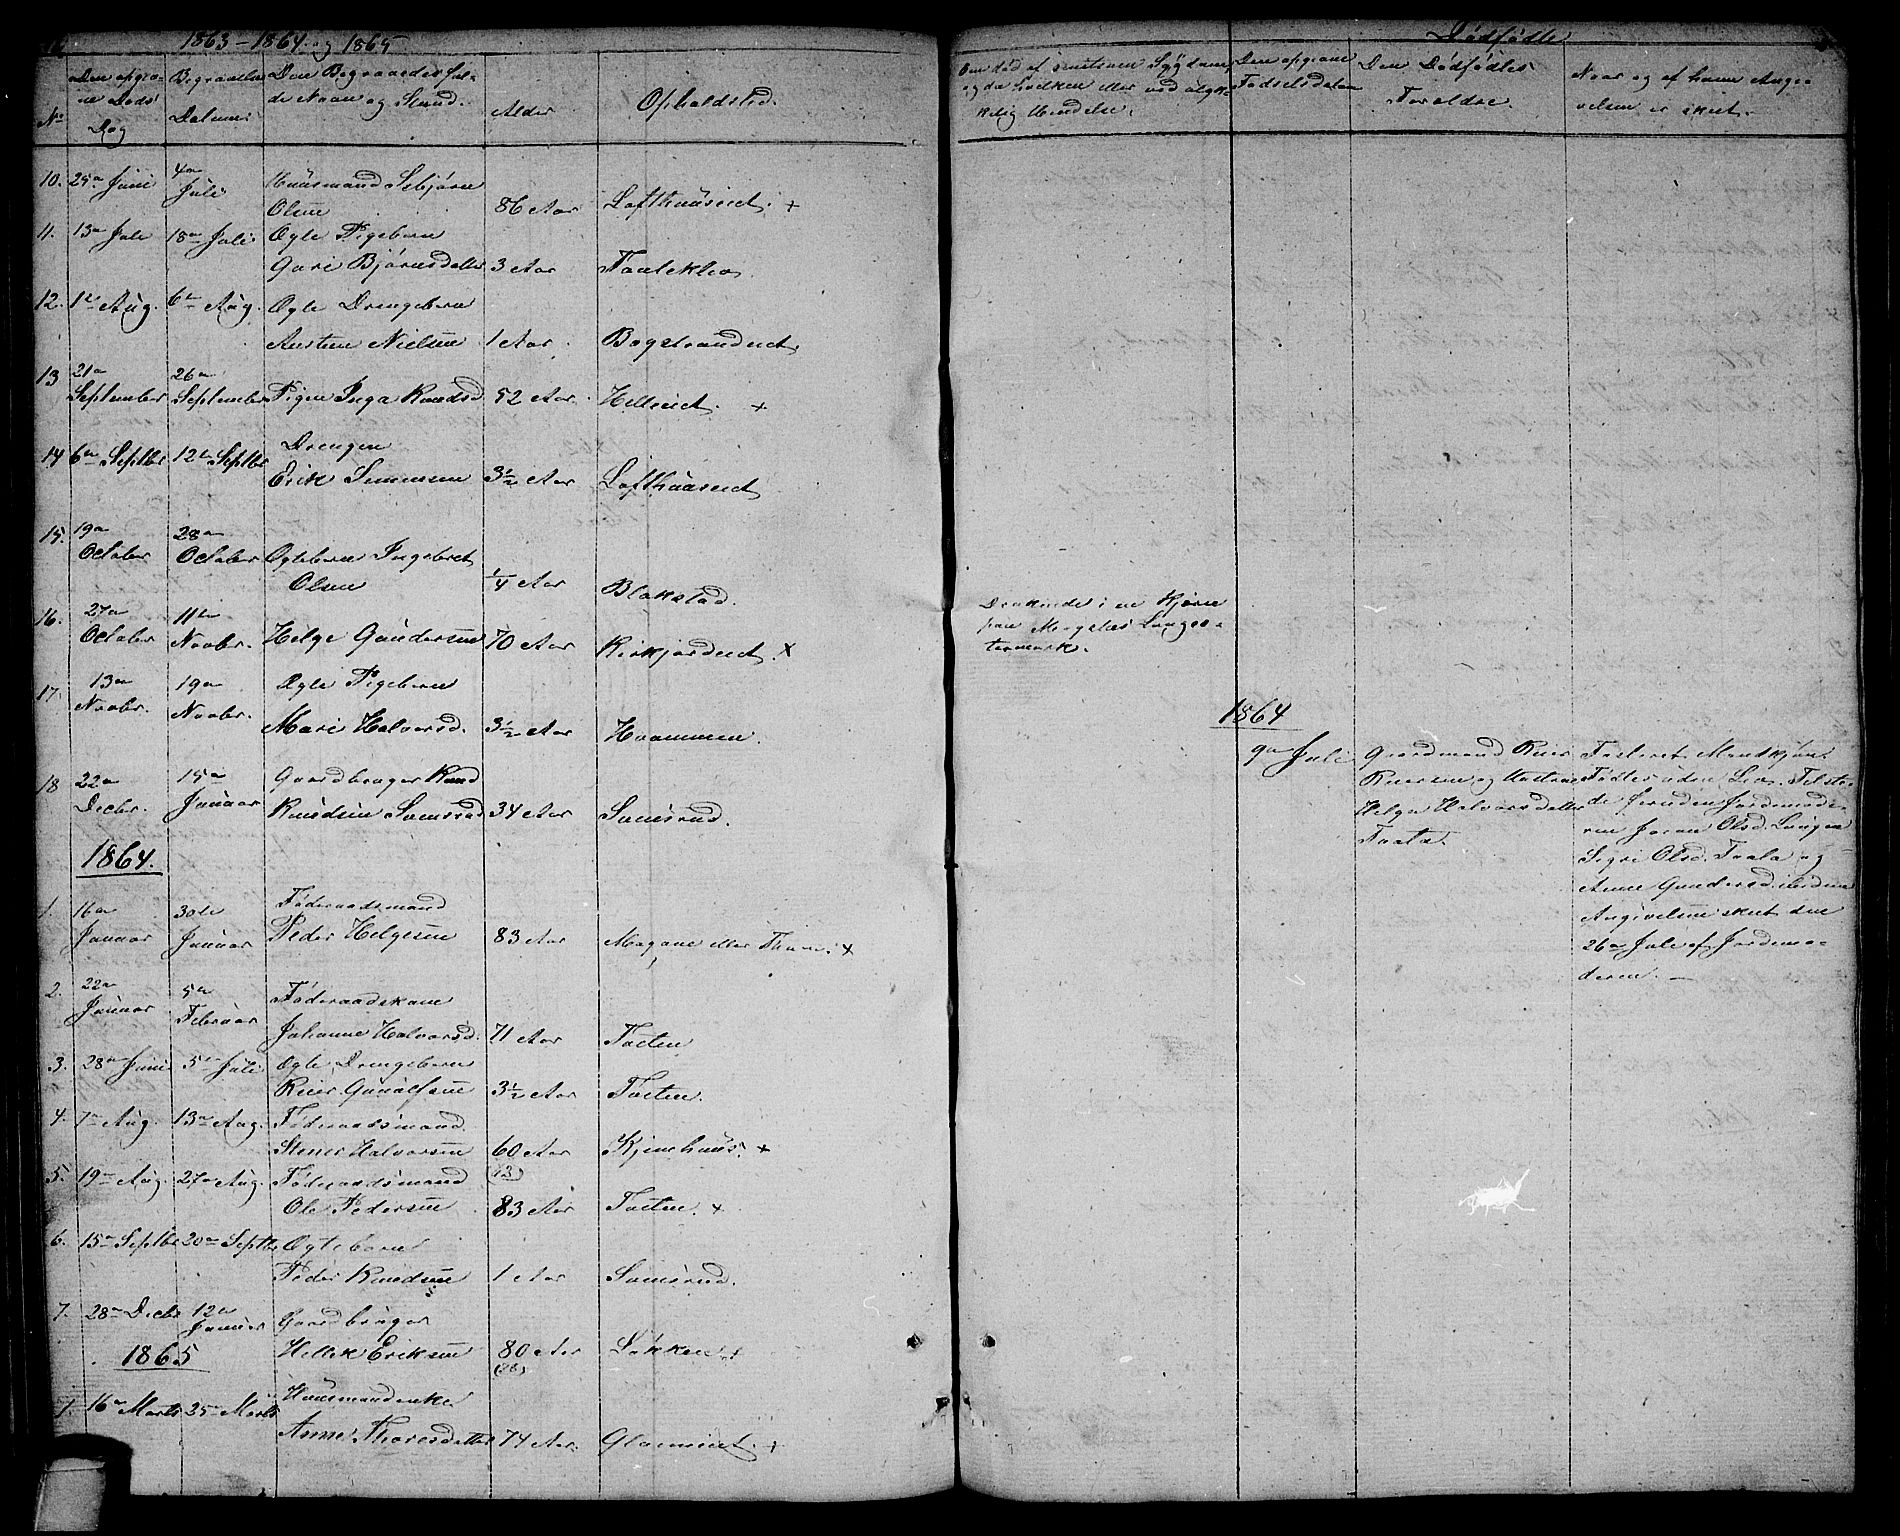 1863-1864 og 1865
No
Den opgivne Døds Dag
Begravelses Datum
Den Begravedes fulde Navn og Stand.
Alder
Opholdsted.
10. 25de Juni 4de Juli Huusmand Sebjørn
Olsen 86 Aar Lofthuuseiet. +
11. 13de Juli 18de Juli Ægte Pigebarn
Guri Bjørnsdatter 3 Aar Taaleklev
12. 1ste Aug. 6te Aug. Ægte Drengebarn
Austen Nielsen 1 Aar Bogstrandeiet
13 21de September 26de September Pigen Inga Knudsd 52 Aar Helleeiet. +
14 6te Septbr 12te Septbr Drengen
Erik Simensen 3½ Aar Lofthuuseiet
15. 19de October 28de October Ægtebarn Ingebret
Olsen ¼ Aar Blakstad.
16. 27de October 11te Novbr. Helge Gundersen 70 Aar Kirkjordeiet. +
17. 13de Novbr. 19de Novbr. Ægte Pigebarn
Mari Halvorsd. 3½ Aar Hvammen.
18 22de Decbr. 15de Januar Gaardbruger Knud
Knudsen Somsrud 34 Aar Somsrud.
1864.
1. 16de Januar 30te Januar Føderaadsmand
Peder Helgesen 83 Aar Mogane eller Thveni +
2. 22de Januar 5te Februar Føderaadskone
Johanne Halvorsd. 71 Aar Toeten
3. 28de Juni 5te Juli Ægte Drengebarn
Reier Gunulfsen 3½ Aar Toeten.
4. 7de Aug. 13de Aug. Føderaadsmand
Stener Halvorsen 60 Aar Kjenehuus. +
5. 19de Aug. 27de Aug. Føderaadsmand
Ole Pedersen 83 Aar Toeten. +
6. 15de Septbr 20de Septbr Ægtebarn
Peder Knudsen 1 Aar Somsrud.
7. 28de Decbr 12te Januar Gaardbruger
Hellek Eriksen 80 Aar Løkken +
1865
1. 16de Marts 25de Marts Huusmandsenke
Anne Thoresdatter 74 Aar. Gloseeiet. +
Dødfødte
Om død af smitsom Sygdom,
og da hvilken eller ved ulykkelig Hendelse.
Den opgivne Fødselsdatum
Den Dødfødtes
Forældre.
Naar og af hvem Angivelsen er skeet.
Druknede i en Kjørn
paa
1864
9de Juli
Gaardmand Reier
Reiersen og Hustrue
Helga Halvorsdatter
Traate.
Fosteret Mandkjøn.
Fødte uden Liv. Tilstede foruden Jordemoderen Joran Olsd. Langen
Sigri Olsd. Traata og
Anne Gundersd. ibidem
Angivelsen skeet den
26de Juli af Jordemoderen. —